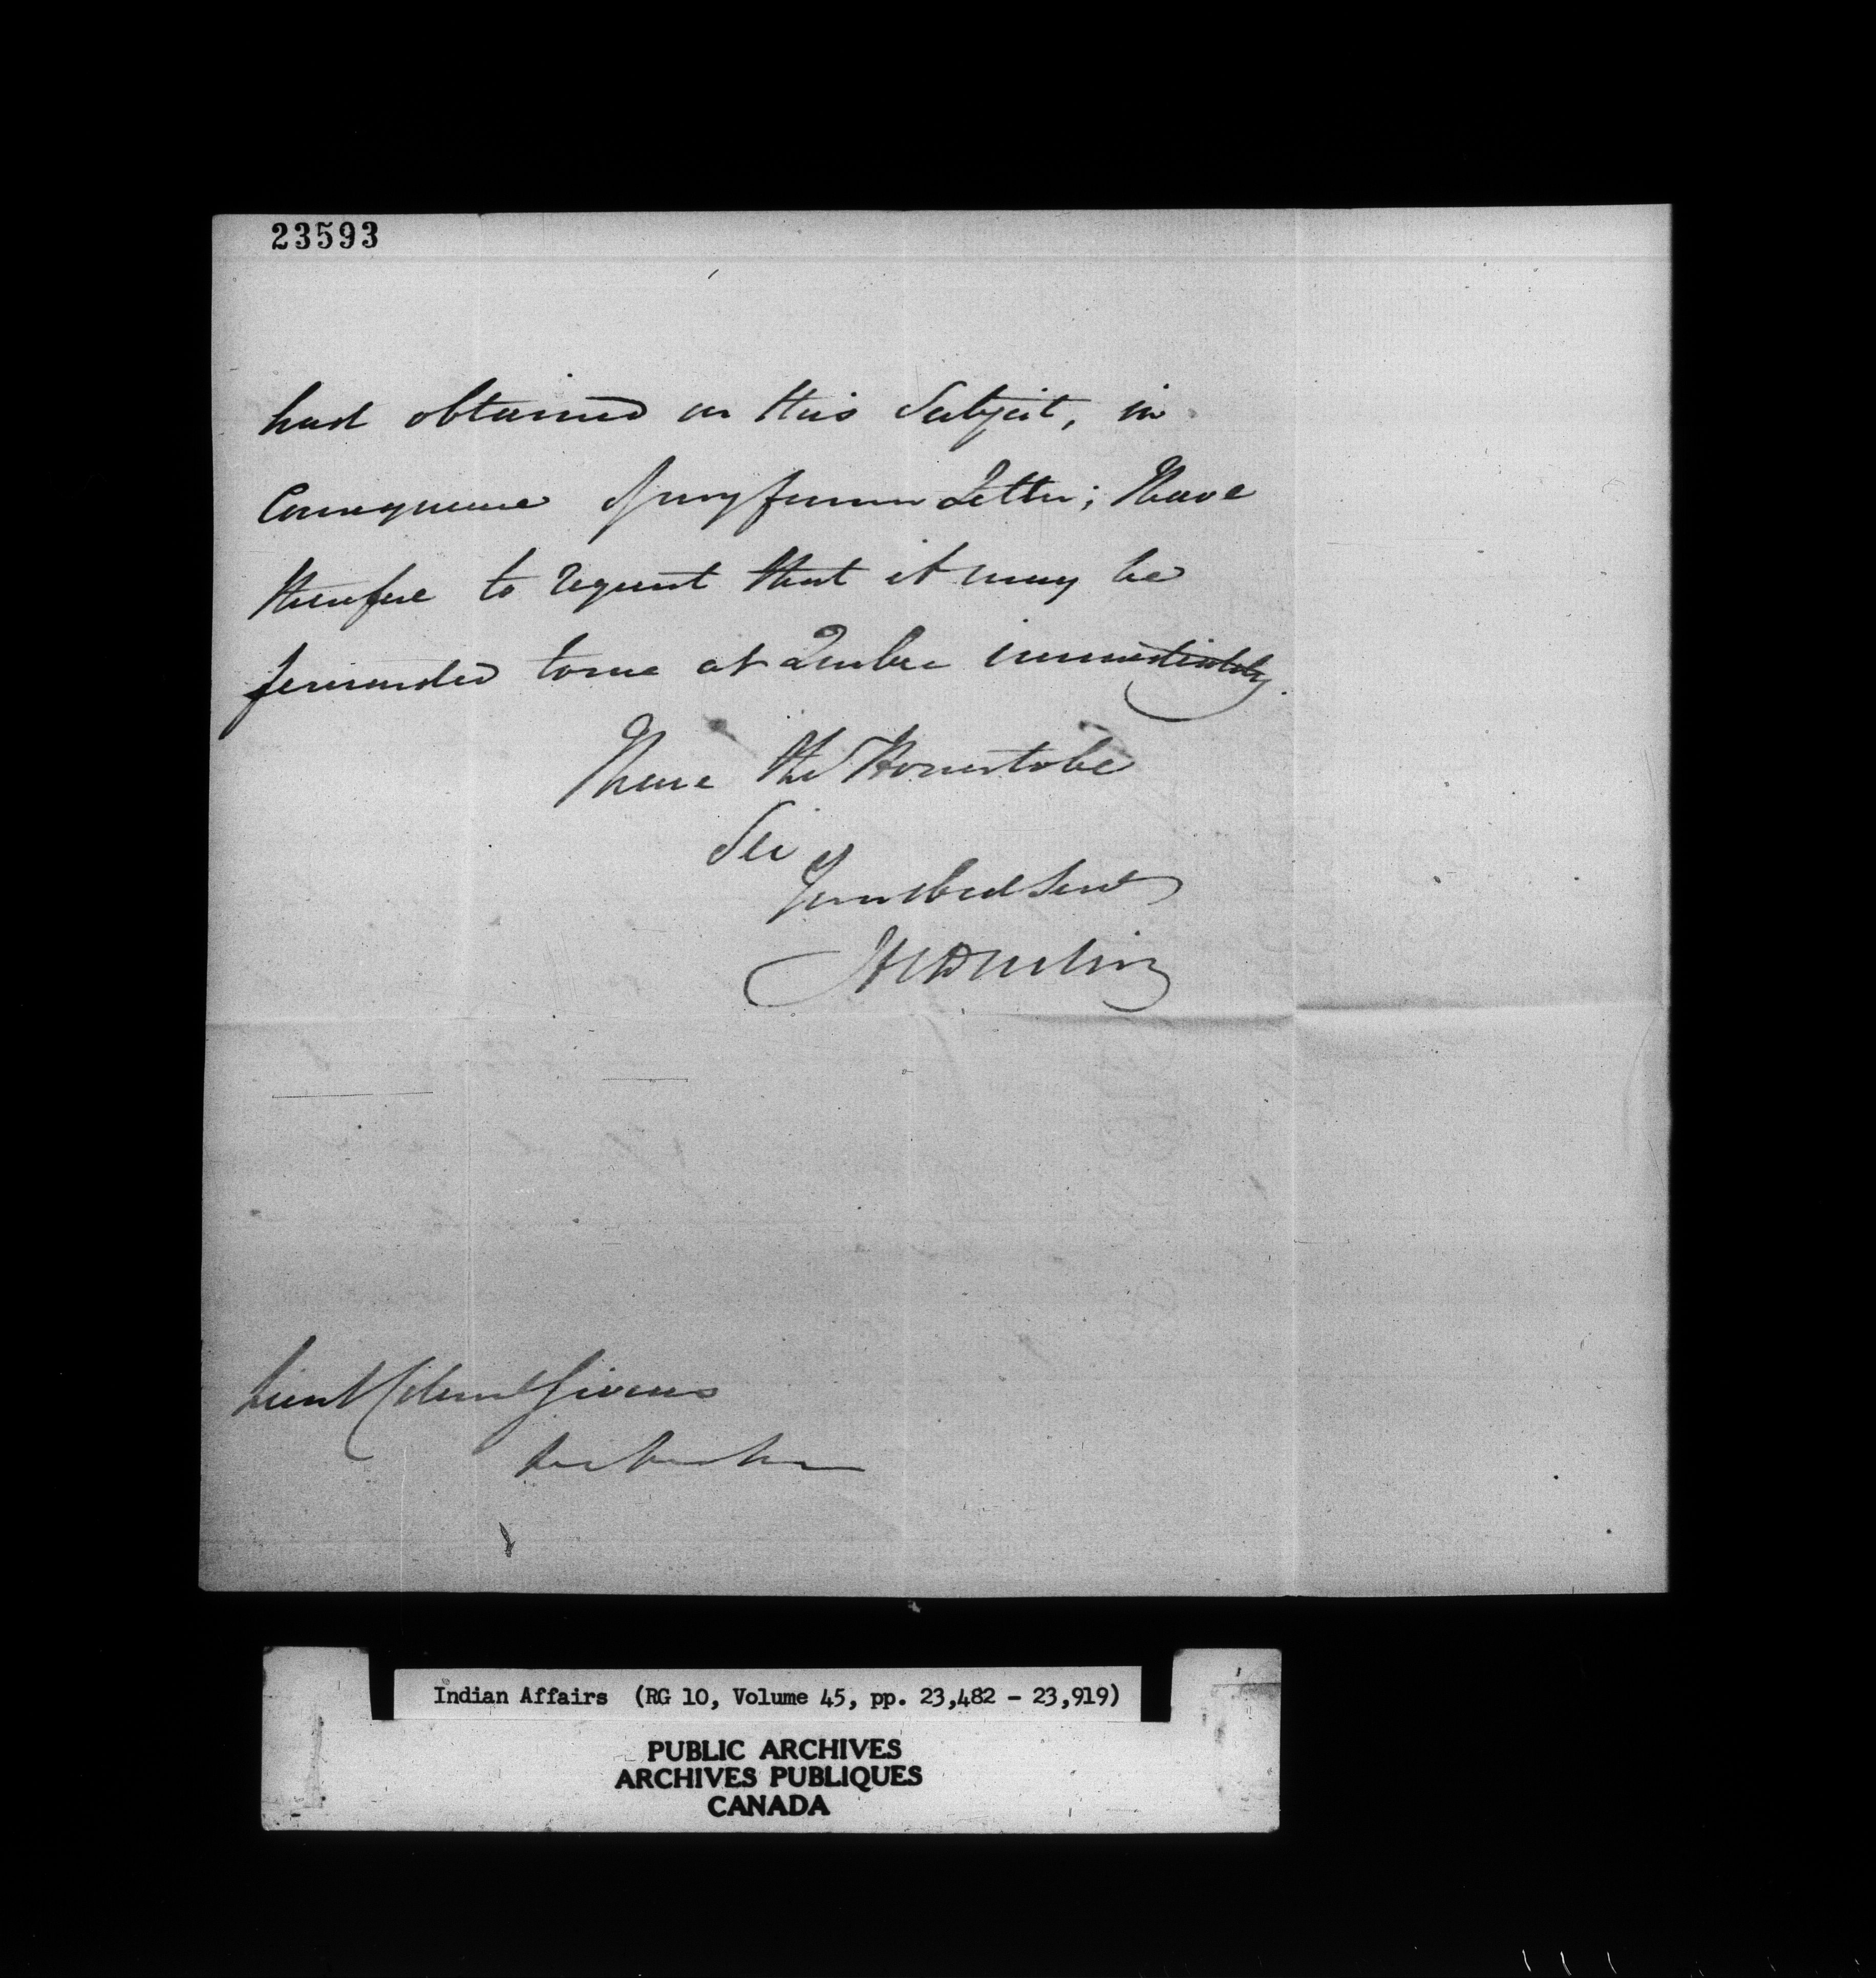 23593
had obtained on this Subject, in
Consequence of my former Letter; I have
therefore to request that it may be
forwarded to me at Quebec immediately.
I have the Honor to be
Sir
Your obed Servt
HCDarling
Lieut Colonel Givens
Indian Affairs (RG 10, Volume 45, pp. 23,482 - 23,919)
PUBLIC ARCHIVES
ARCHIVES PUBLIQUES
CANADA